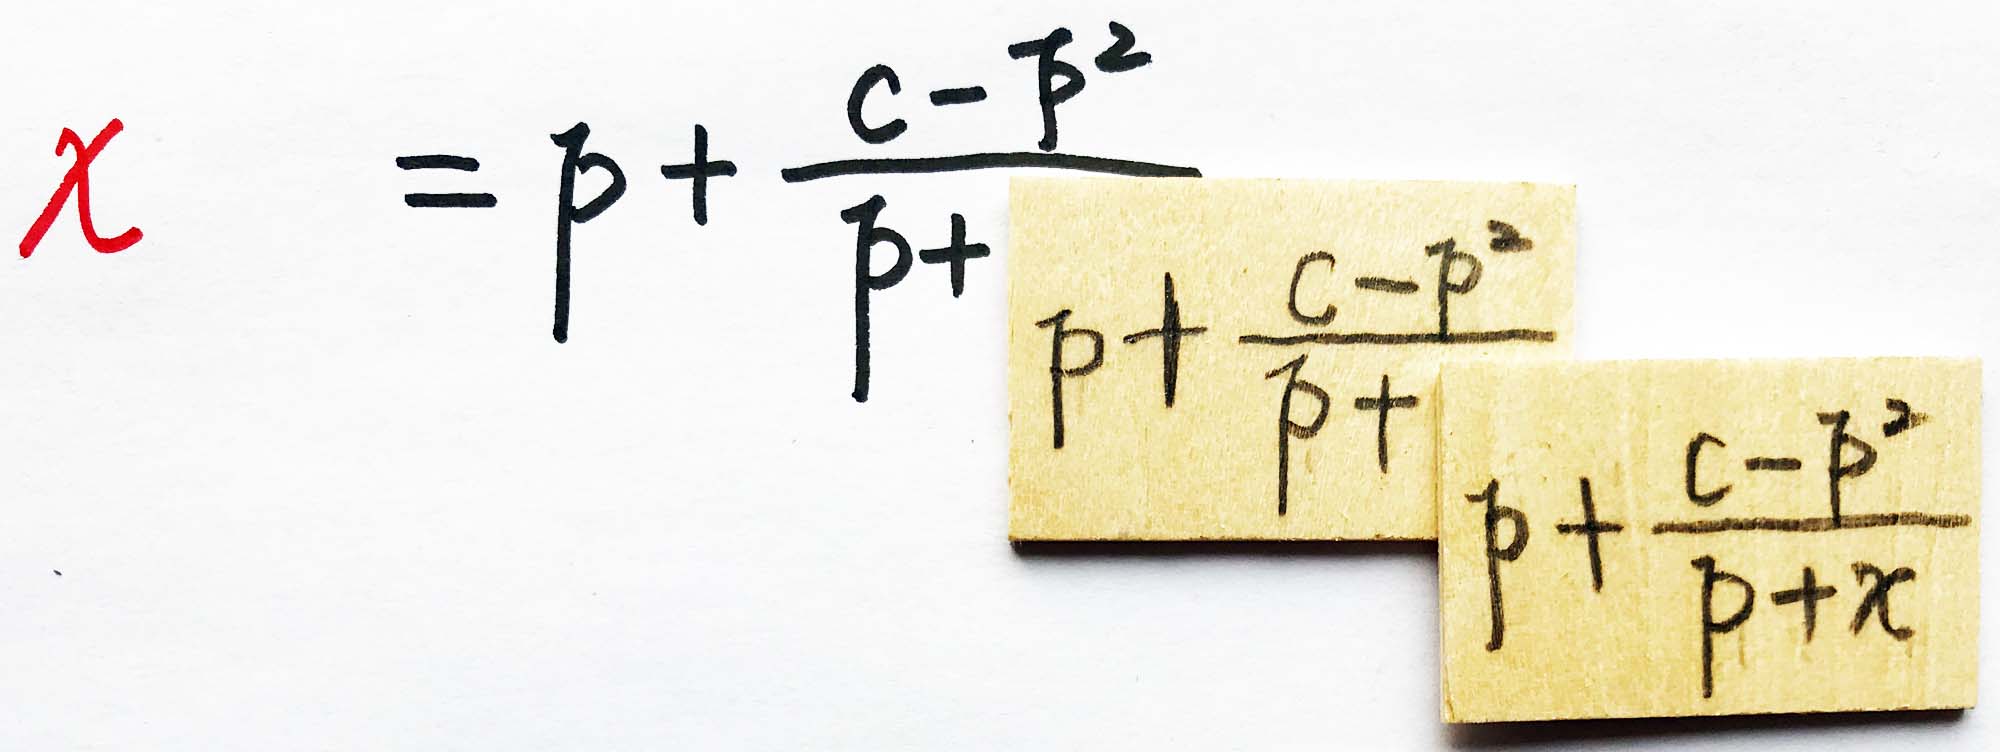 x = p + c - p²
p +
p + c - p²
p +
p + c - p²
p + x